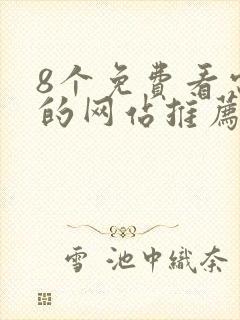 8个免費看
的网佔推薦
雪 池中織奈